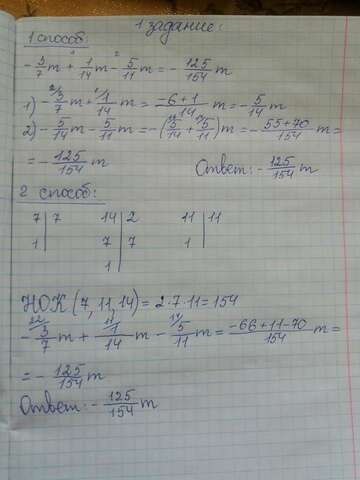 1 задание:
1 способ:
-3/7 m + 1/14 m - 5/11 m = -125/154 m
1) -3/7 m + 1/14 m = (-6+1)/14 m = -5/14 m
2) -5/14 m - 5/11 m = -(5/14 + 5/11) m = -(55+70)/154 m =
= -125/154 m Ответ: -125/154 m
2 способ:
7 | 7 14 | 2 11 | 11
1 | 7 | 7 1 |
1 |
НОК (7, 11, 14) = 2·7·11 = 154
-3/7 m + 1/14 m - 5/11 m = (-66+11-70)/154 m =
= -125/154 m
Ответ: -125/154 m